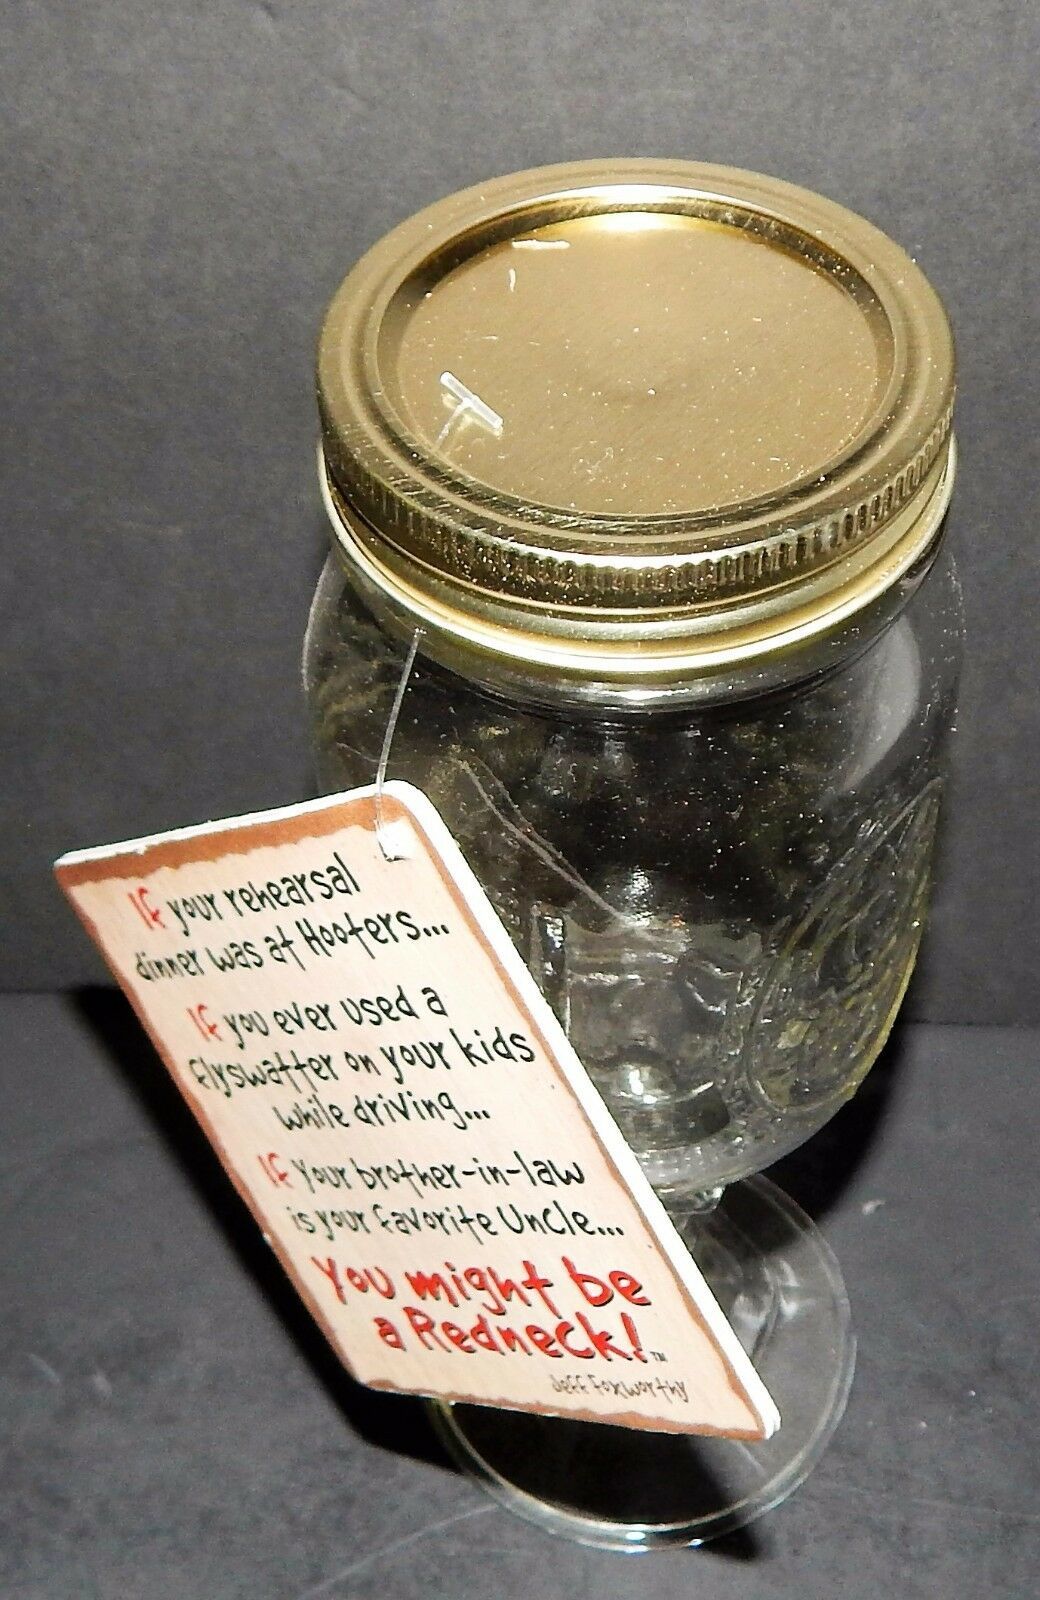 If your rehearsal
dinner was at Hooters...
If you ever used a
flyswatter on your kids
while driving...
If your brother-in-law
is your favorite Uncle...
You might be
a Redneck!™
Jeff Foxworthy